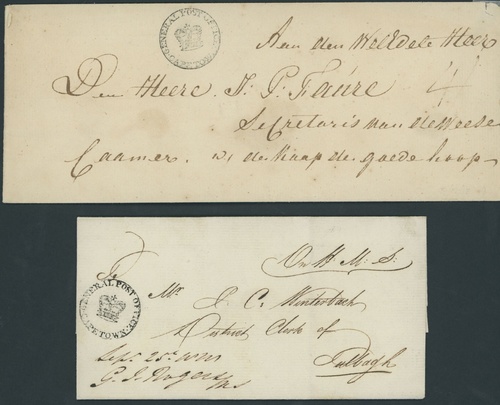 GENERAL POST OFFICE
CAPE TOWN
Aan den WelEdele Heer
Den Heere J: P: Faure
Secretaris van de Weese
Caamer de Kaap de goede hoop
GENERAL POST OFFICE
CAPE TOWN
On H: M: S:
To
Mr. J. C. Winterbach
District Clerk of
Tulbagh
Sept. 25th
G. J. Rogers